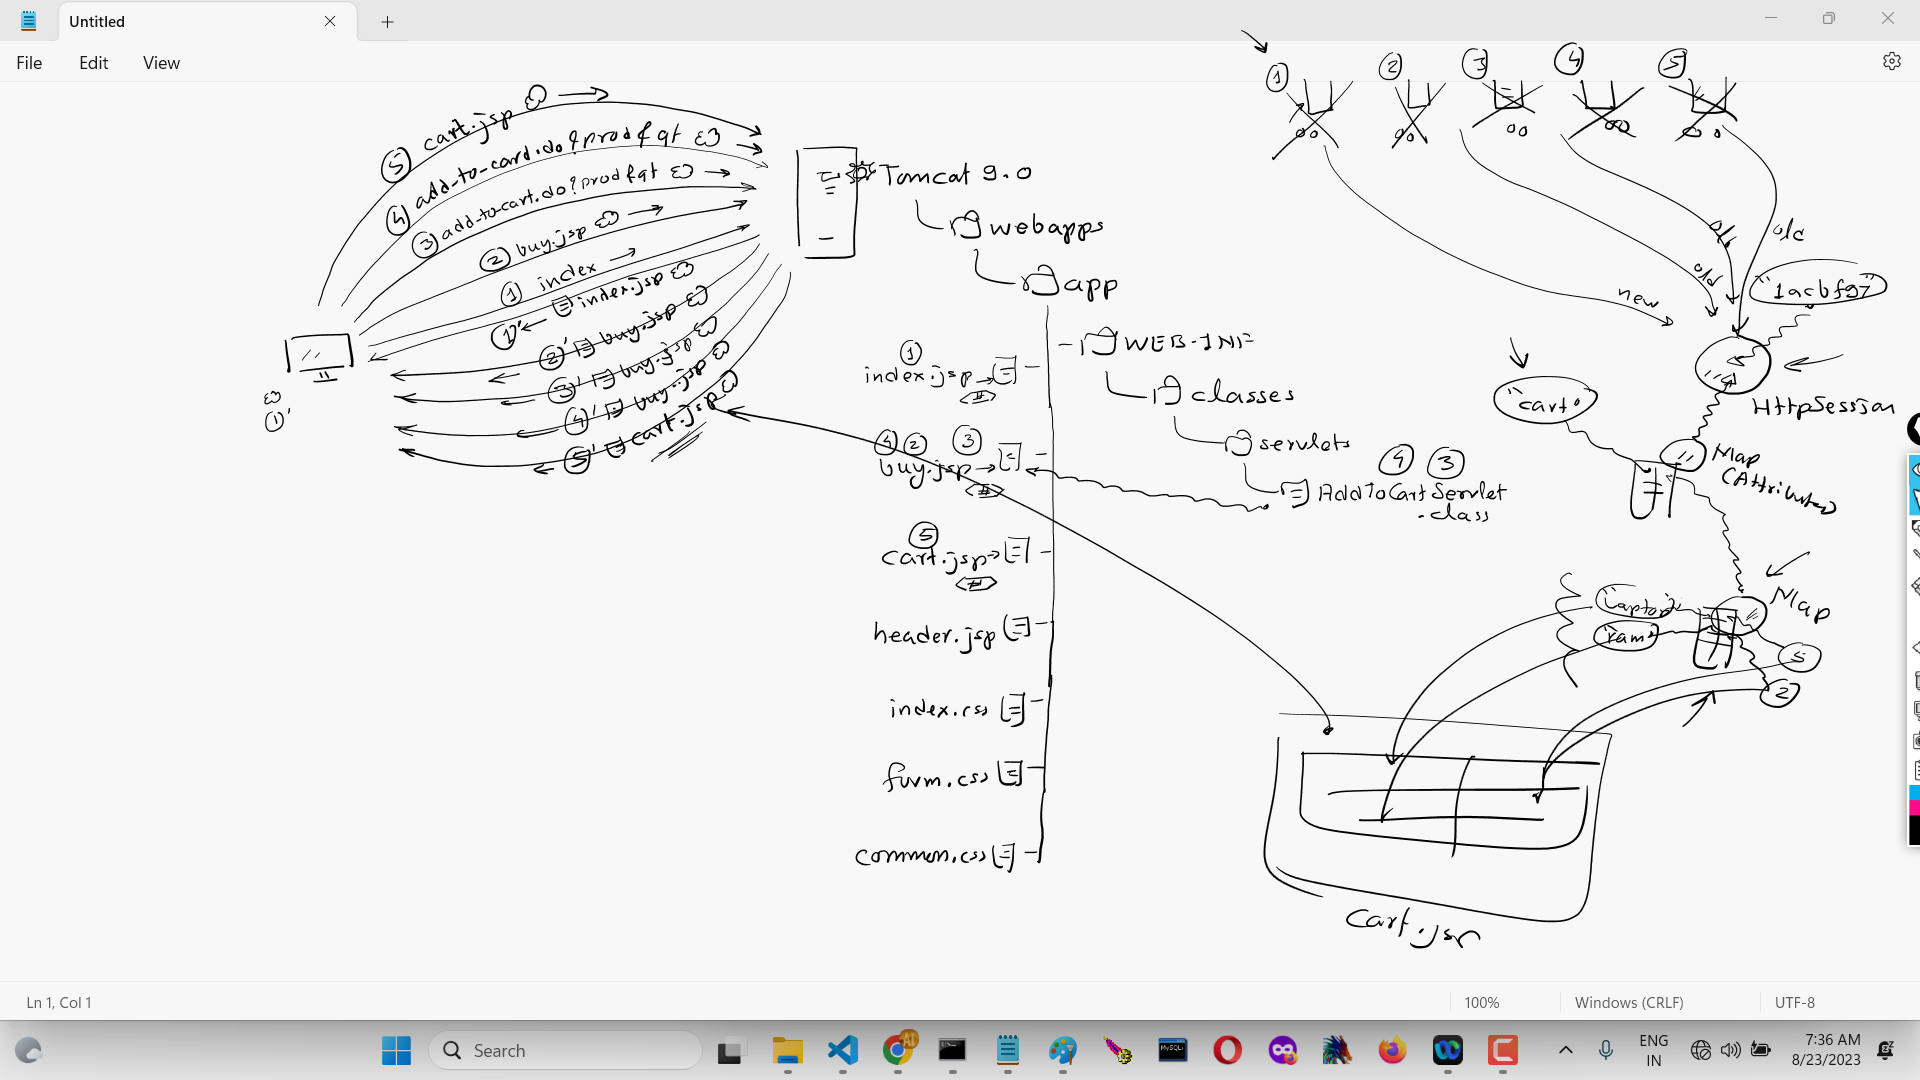 Untitled
File Edit View
5 cart.jsp
4 add-to-card.do?prod&qt
3 add-to-cart.do?prod&qt
2 buy.jsp
1 index
1' index.jsp
2' buy.jsp
3' buy.jsp
4' buy.jsp
5' cart.jsp
1'
Tomcat 9.0
webapps
app
WEB-INF
classes
servlets
4 3
AddToCartServlet
.class
1
index.jsp
4 2 3
buy.jsp
5
cart.jsp
header.jsp
index.css
common.css
1 2 3 4 5
old
old
old
new
"1acbf97"
HttpSession
"cart"
Map
(Attributes)
Map
"laptop"
"ram"
5
2
Cart.jsp
Ln 1, Col 1
100%
Windows (CRLF)
UTF-8
Search
AI
MySQL
ENG
IN
7:36 AM
8/23/2023